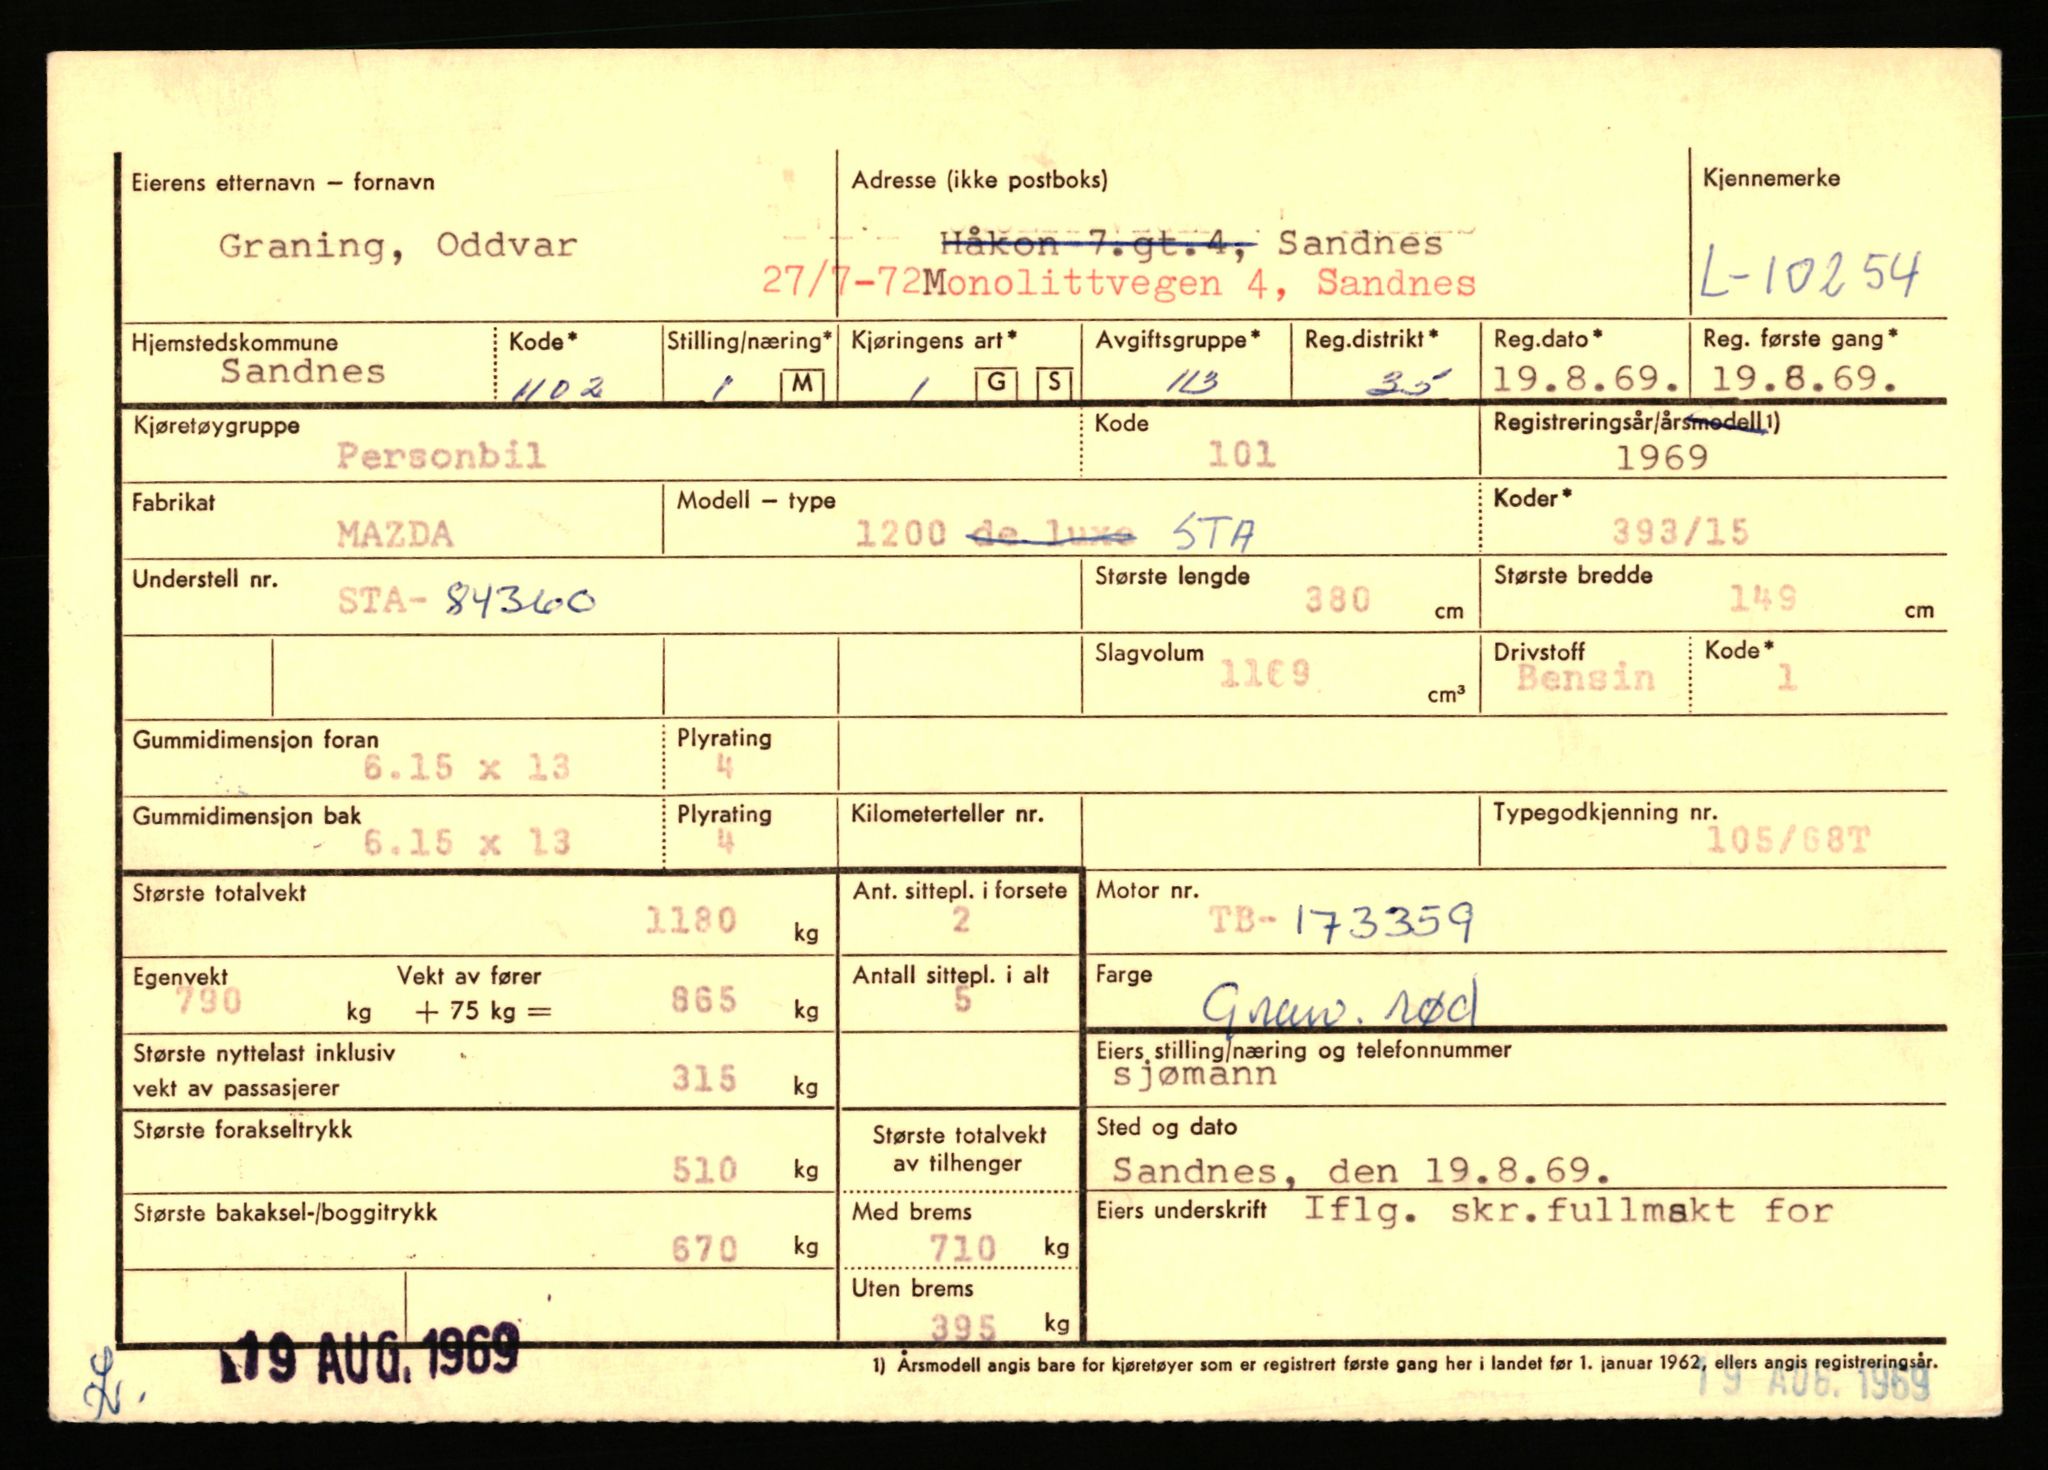 Eierens etternavn – fornavn Adresse (ikke postboks) Kjennemerke
Graning, Oddvar Håkon 7.gt.4, Sandnes
27/7-72 Monolittvegen 4, Sandnes L-10254
Hjemstedskommune Kode* Stilling/næring* Kjøringens art* Avgiftsgruppe* Reg.distrikt* Reg.dato* Reg. første gang*
Sandnes 1102 1 M 1 G S 113 35 19.8.69. 19.8.69.
Kjøretøygruppe Kode Registreringsår/årsmodell 1)
Personbil 101 1969
Fabrikat Modell – type Koder*
MAZDA 1200 de luxe STA 393/15
Understell nr. Største lengde Største bredde
STA- 84360 380 cm 149 cm
Slagvolum Drivstoff Kode*
1169 cm³ Bensin 1
Gummidimensjon foran Plyrating
6.15 x 13 4
Gummidimensjon bak Plyrating Kilometerteller nr. Typegodkjenning nr.
6.15 x 13 4 105/68T
Største totalvekt Ant. sittepl. i forsete Motor nr.
1180 kg 2 TB- 173359
Egenvekt Vekt av fører Antall sittepl. i alt Farge
790 kg + 75 kg = 865 kg 5 rød
Største nyttelast inklusiv Eiers stilling/næring og telefonnummer
vekt av passasjerer 315 kg sjømann
Største forakseltrykk Største totalvekt Sted og dato
av tilhenger
510 kg Sandnes, den 19.8.69.
Største bakaksel-/boggitrykk Med brems Eiers underskrift Iflg. skr.fullmakt for
670 kg 710 kg
Uten brems
395 kg
19 AUG. 1969
1) Årsmodell angis bare for kjøretøyer som er registrert første gang her i landet før 1. januar 1962, ellers angis registreringsår.
19 AUG. 1969